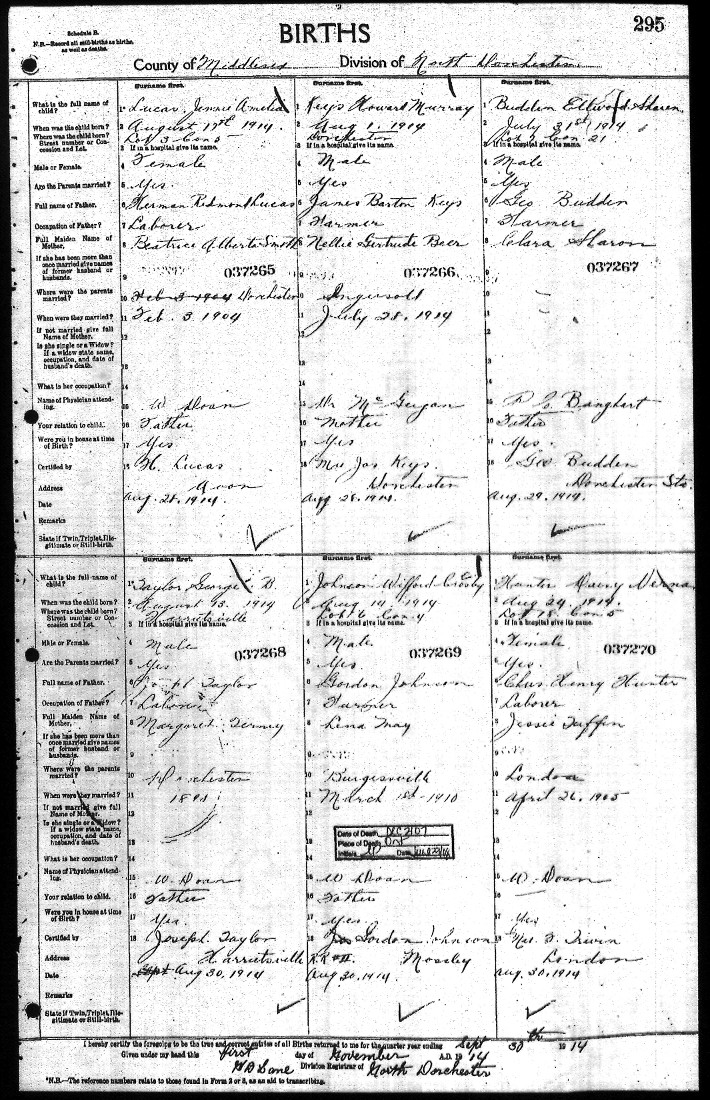 Schedule B.
N.B.—Record all still-births as births, as well as deaths.
BIRTHS
295
County of Middlesex Division of North Dorchester
Surname first. Surname first. Surname first.
What is the full name of child? 1 Lucas Jennie Amelia Keys Howard Murray Budden Ellwood Sharon
When was the child born? 2 August 17th 1914. Aug 1, 1914 July 31st 1914
Where was the child born? Street number or Concession and Lot. Lot 3 Con 5 Dorchester
3 If in a hospital give its name. 3 If in a hospital give its name. 3 If in a hospital give its name.
Male or Female. 4 Female 4 Male 4 Male
Are the Parents married? 5 Yes. 5 Yes 5 Yes
Full name of Father. 6 Herman Redmond Lucas 6 James Barton Keys 6 Geo Budden
Occupation of Father? 7 Laborer 7 Farmer 7 Farmer
Full Maiden Name of Mother. 8 Beatrice Alberta Smith Nellie Gertrude Beer 8 Clara Sharon
If she has been more than once married give names of former husband or husbands. 9 037265 037266 037267
Where were the parents married? 10 Feb 3 1904 Dorchester 10 Ingersoll
When were they married? 11 Feb. 3. 1904 11 July 28, 1914
If not married give full Name of Mother. 12
Is she single or a Widow? If a widow state name, occupation, and date of husband's death. 13
What is her occupation? 14
Name of Physician attending. 15 W Doan Mr McGugan Banghart
Your relation to child. 16 Father 16 Mother Father
Were you in house at time of Birth? 17 Yes. 17 Yes 17 Yes.
Certified by 18 H. Lucas 18 Mrs Jas Keys. 18 Geo Budden
Address Avon Dorchester Dorchester Sta.
Date Aug. 28, 1914. Aug 28, 1914. Aug. 29, 1914.
Remarks
State if Twin, Triplet, Illegitimate or Still-birth.
Surname first. Surname first. Surname first.
What is the full name of child? 1 Taylor George B. 1 Johnson Wilford Crosby Hunter Verna
When was the child born? 2 August 13, 1914 Aug 14, 1914 Aug 24, 1914.
Where was the child born? Street number or Concession and Lot. Harrietsville Lot 6 Con 4 Lot 18 Con 5
3 If in a hospital give its name. 3 If in a hospital give its name. 3 If in a hospital give its name.
Male or Female. 4 Male 4 Male 4 Female
037268 037269 037270
Are the Parents married? 5 Yes 5 Yes. Yes.
Full name of Father. 6 Taylor Gordon Johnson Chas Henry Hunter
Occupation of Father? 7 Laborer 7 Farmer Laborer
Full Maiden Name of Mother. 8 Margaret 8 Lena May Jessie Taffin
If she has been more than once married give names of former husband or husbands. 9
Where were the parents married? 10 Dorchester 10 Burgessville 10 London
When were they married? 11 11 March 1910 11 April 26, 1905
If not married give full Name of Mother. 12
Is she single or a Widow? If a widow state name, occupation, and date of husband's death. 13
Date of Death
Place of Death Ont
Initials Date
What is her occupation? 14
Name of Physician attending. 15 W. Doan 15 W Doan 15 W. Doan
Your relation to child. 16 Father 16 Father 16
Were you in house at time of Birth? 17 Yes. 17 Yes. 17 Yes
Certified by 18 Joseph Taylor 18 Gordon Johnson Mrs. Irwin
Address Harrietsville Mossley London
Date Sept Aug 30, 1914 Aug 30, 1914 Aug. 30, 1914
Remarks
State if Twin, Triplet, Illegitimate or Still-birth.
I hereby certify the foregoing to be the true and correct entries of all Births returned to me for the quarter year ending Sept 30th 1914
Given under my hand this first day of November A.D. 1914
Lane Division Registrar of North Dorchester
*N.B.—The reference numbers relate to those found in Form 2 or 3, as an aid to transcribing.